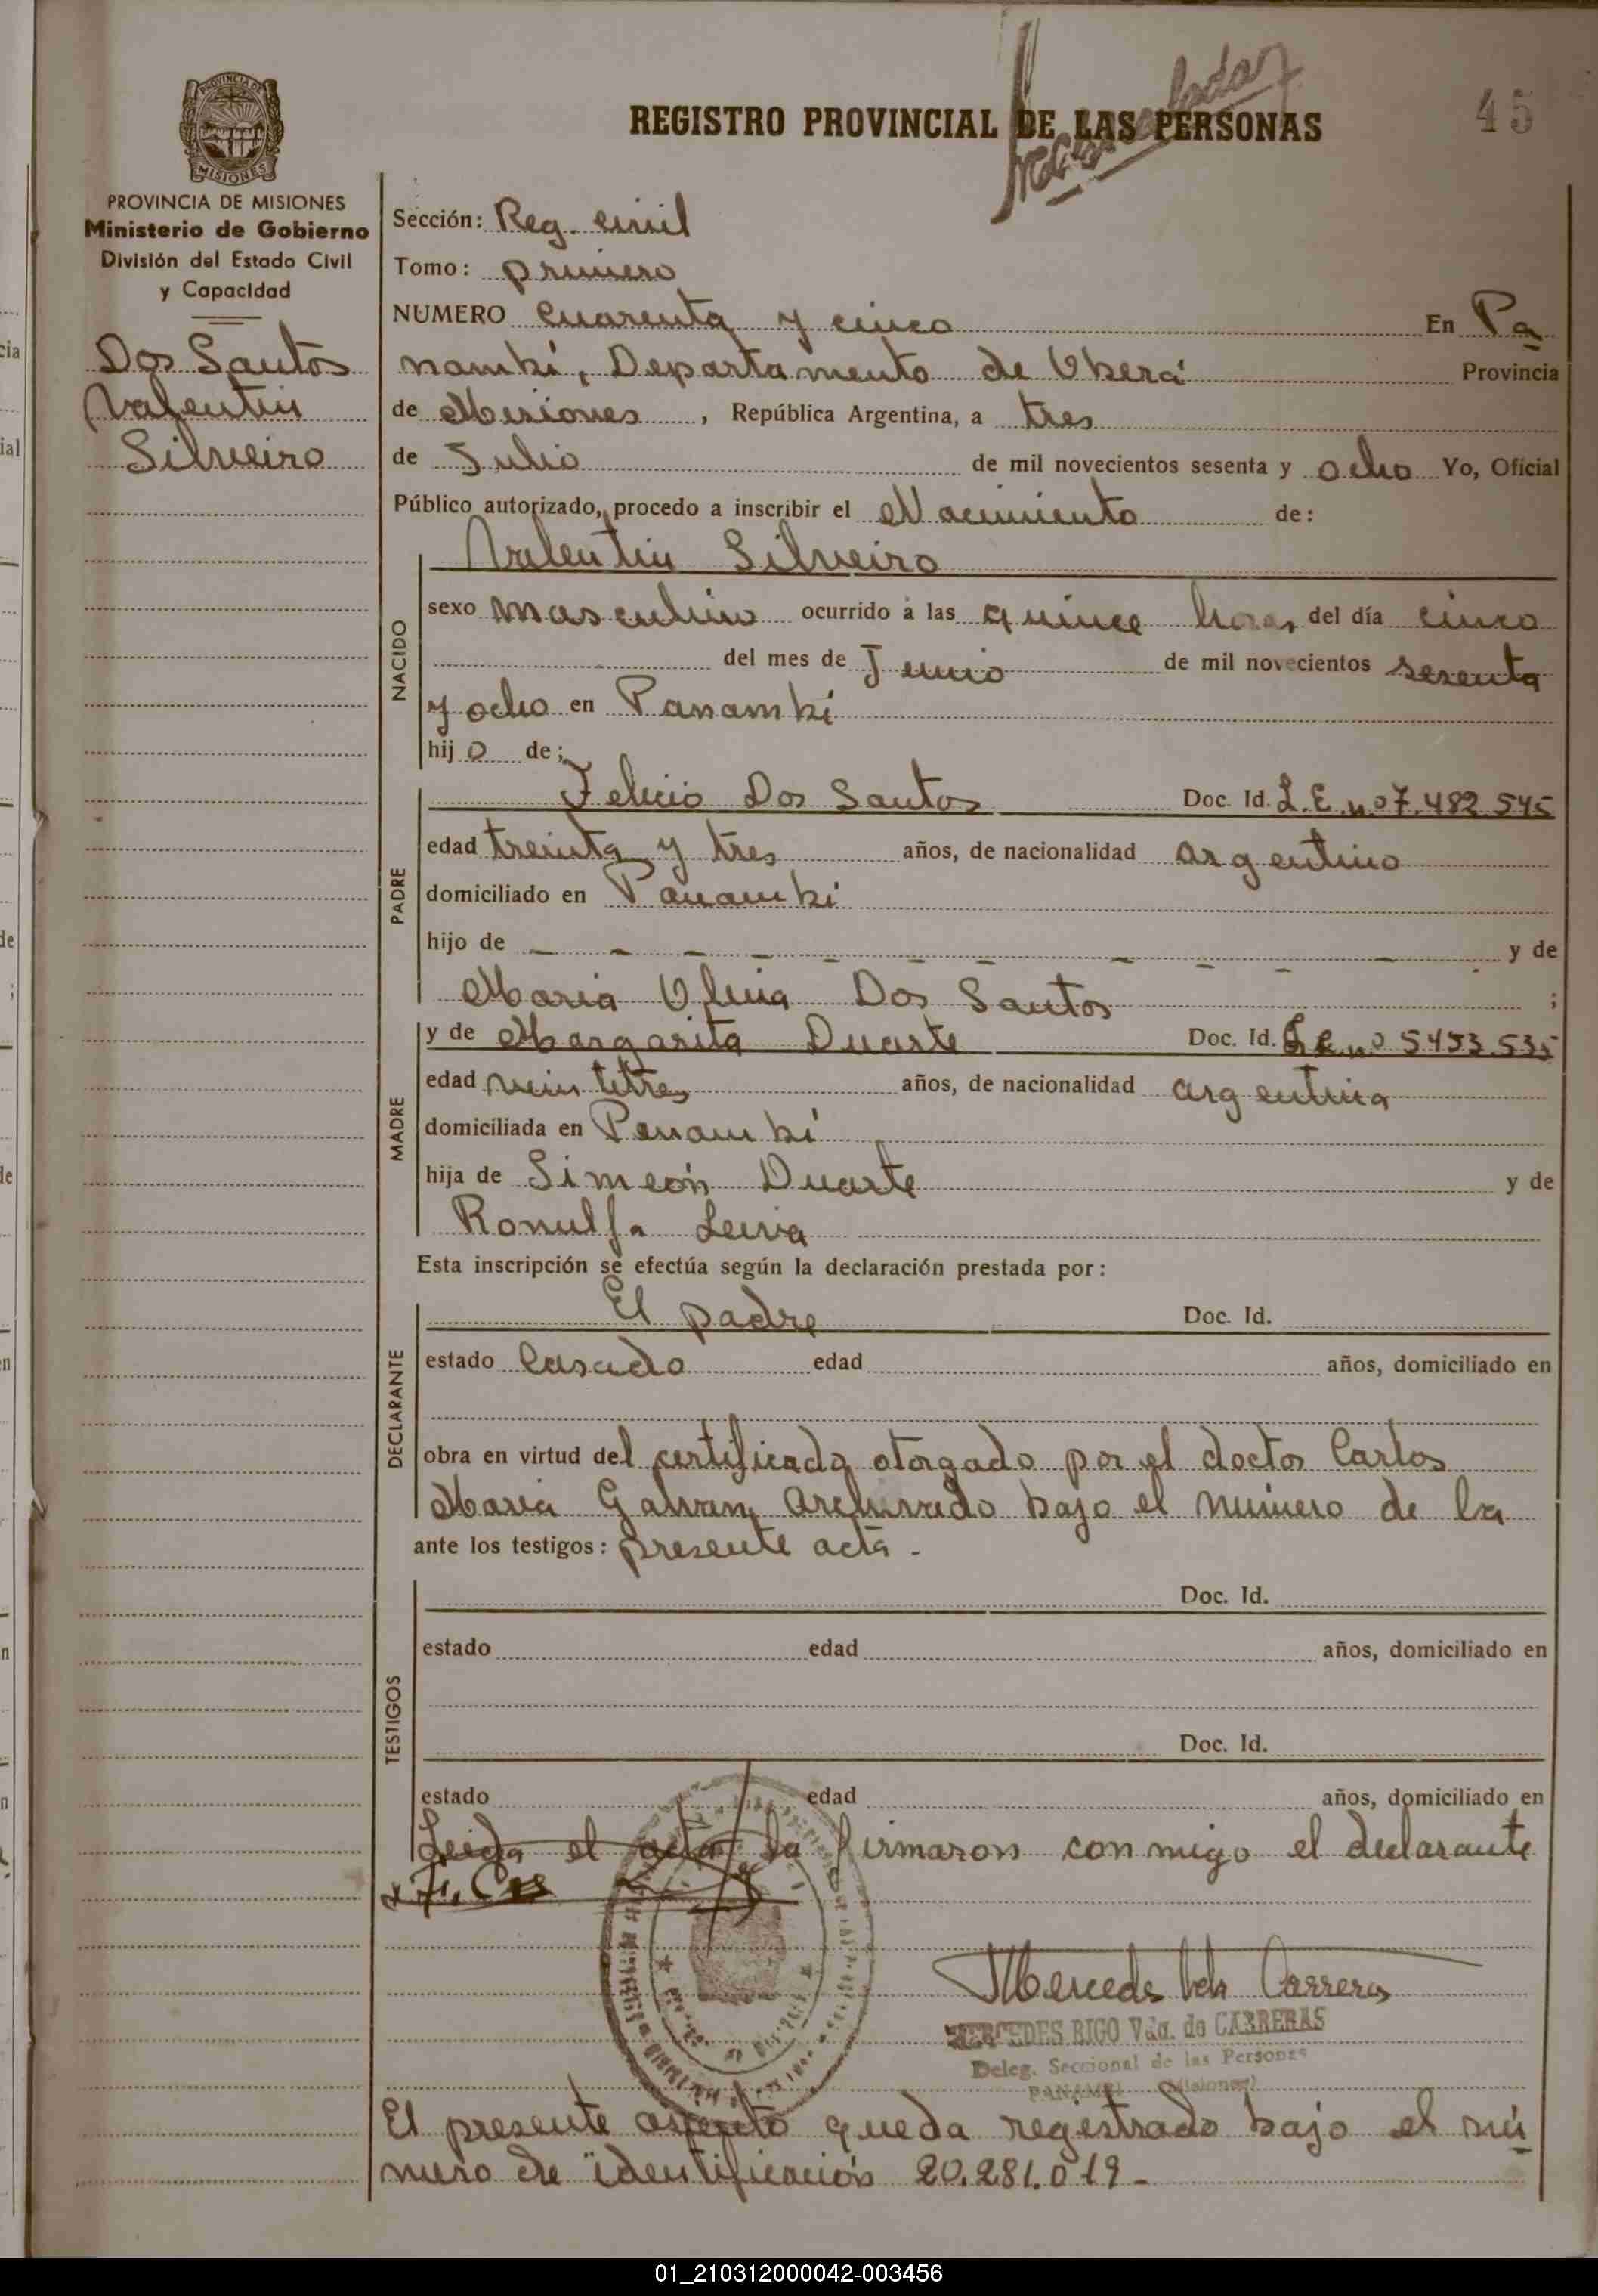 REGISTRO PROVINCIAL DE LAS PERSONAS
45
PROVINCIA DE MISIONES
PROVINCIA DE MISIONES
Ministerio de Gobierno
División del Estado Civil
y Capacidad
Dos Santos
Valentin
Silveiro
Sección: Reg. civil
Tomo: primero
NUMERO Cuarenta y cinco En Pa
nambi, Departamento de Oberá Provincia
de Misiones, República Argentina, a tres
de Julio de mil novecientos sesenta y ocho Yo, Oficial
Público autorizado, procedo a inscribir el Nacimiento de:
NACIDO
Valentin Silveiro
sexo masculino ocurrido a las quince horas del día cinco
del mes de Junio de mil novecientos sesenta
y ocho en Panambi
hijo de:
PADRE
Felicio Dos Santos Doc. Id. L.E. nº 7.482.545
edad treinta y tres años, de nacionalidad argentino
domiciliado en Panambi
hijo de - - - - - - - - - - - y de
Maria Dos Santos ;
MADRE
y de Margarita Duarte Doc. Id. nº 5493.535
edad veintitres años, de nacionalidad argentina
domiciliada en Panambi
hija de Simeón Duarte y de
Ronulfa Leiva
Esta inscripción se efectúa según la declaración prestada por:
DECLARANTE
El padre Doc. Id.
estado Casado edad años, domiciliado en
obra en virtud del certificado otorgado por el doctor Carlos
Maria Galvan, Archivado bajo el número de la
ante los testigos: presente acta -
TESTIGOS
Doc. Id.
estado edad años, domiciliado en
Doc. Id.
estado edad años, domiciliado en
Leida el acta la firmaron conmigo el declarante
Mercedes Vda Carreras
MERCEDES RIGO Vda. de CARRERAS
Deleg. Seccional de las Personas
PANAMBI (Misiones)
El presente asiento queda registrado bajo el nú
mero de identificación 20.281.019-
01_210312000042-003456